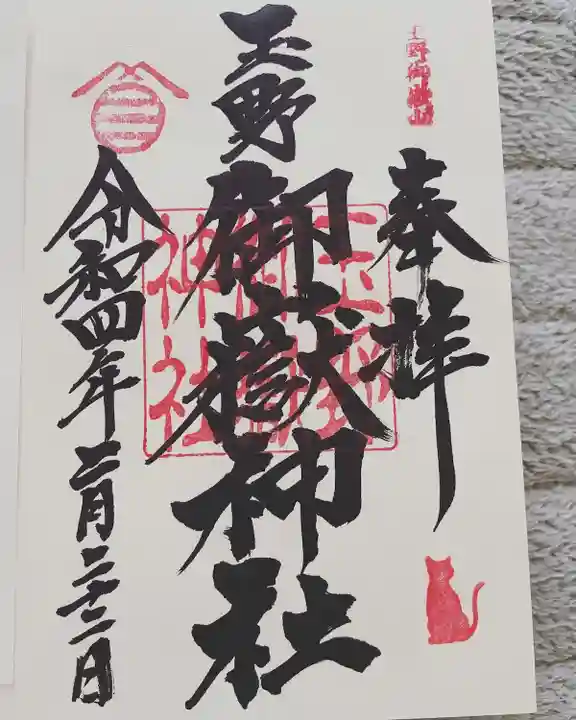 玉野御嶽山
奉拝
玉野
御嶽神社
玉野御嶽神社
三
令和四年二月二十二日